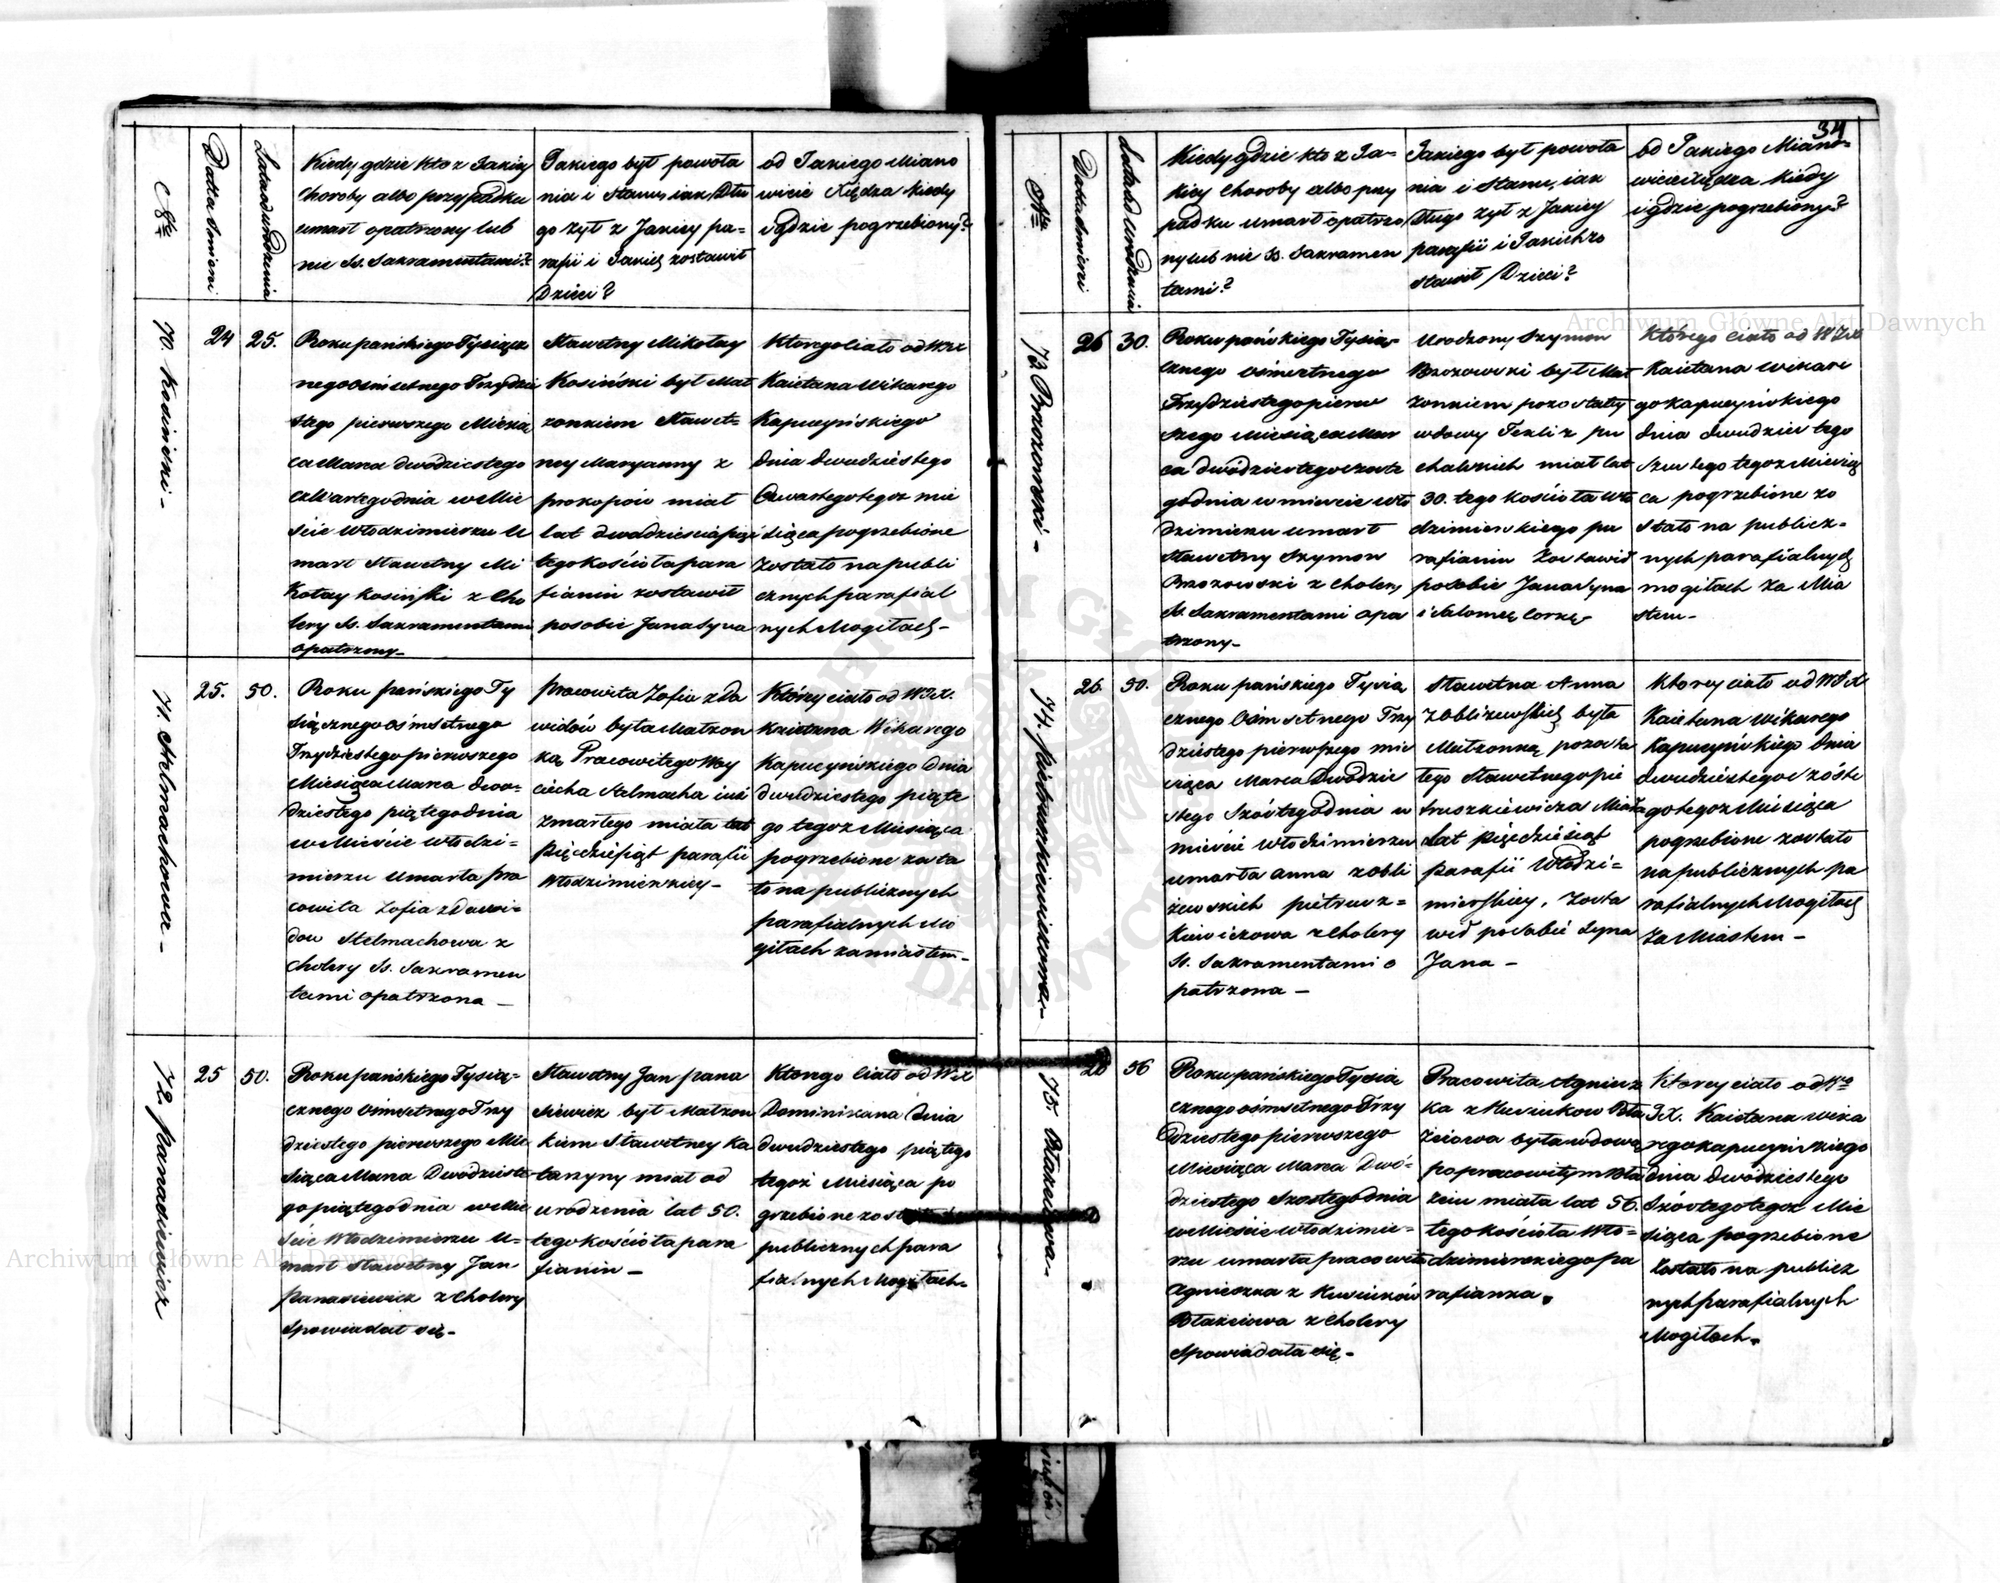 34
Nro
Datta Smierci
Lata od urodzenia
Kiedy gdzie kto z Jakiey
Choroby albo przypadku
umarł opatrzony lub
nie ss. Sakramentami?
Jakiego był powoła
nia i Stanu, jak Dłu
go żył z Jakiey pa=
rafii i Jakich zostawił
Dzieci?
od Jakiego Miano
wicie Xiędza kiedy
i gdzie pogrzebiony?
70. Kosiński -
24
25.
Roku pańskiego Tysiącz
nego ośmsetnego Trzydzie
stego pierwszego Miesią
ca Marca dwódziestego
czwartego dnia w Mie
ście Włodzimierzu U
marł Sławetny Mi
kołay Kosiński z Cho
lery Ss. Sakramentami
opatrzony -
Sławetny Mikołay
Kosiński był Mał
żonkiem Sławet=
ney Maryanny z
prokopów miał
lat dwadzieścia pięć
tego kościoła para
fianin zostawił
po sobie Jana Syna
Którego ciało od WJX
Kaietana Wikarego
Kapucyńskiego
dnia dwudziestego
Czwartego tegoż mie
siąca pogrzebione
zostało na publi
cznych parafial
nych Mogiłach -
71. Stelmachowa -
25.
50.
Roku pańskiego Ty
siącznego ośmsetnego
Trzydziestego pierwszego
Miesiąca Marca dwa=
dziestego piątego dnia
w Mieście Włodzi=
mierzu umarła pra
cowita Zofia z dawi=
dow Stelmachowa z
cholery Ss. Sakramen
tami opatrzona -
pracowita Zofia z da
widów była Małżon
ką Pracowitego Woy
ciecha Stelmacha już
zmarłego miała lat
pięćdziesiąt parafii
Włodzimierskiey -
Którey ciało od WJX.
Kaietana Wikarego
Kapucyńskiego dnia
dwudziestego piąte
go tegoż Miesiąca
pogrzebione zosta
ło na publicznych
parafialnych Mo
giłach za miastem -
72. Panasiewicz
25
50.
Roku pańskiego Tysią=
cznego ośmsetnego Trzy
dziestego pierwszego Mie
siąca Marca Dwódzieste
go piątego dnia w Mie
ście Włodzimierzu U=
marł Sławetny Jan
Panasiewicz z Cholery
Spowiadał się -
Sławetny Jan pana
siewicz był Małżon
kiem Sławetney Ka
tarzyny miał od
urodzenia lat 50.
tego kościoła para
fianin -
Którego Ciało od WX
Dominikana Dnia
dwudziestego piątego
tegoż Miesiąca po
grzebione
publicznych para
fialnych Mogiłach -
Nro
Datta Smierci
Lata od Urodzenia
Kiedy gdzie kto z Ja=
kiey choroby albo przy
padku umarł opatrzo
ny lub nie ss. Sakramen
tami?
Jakiego był powoła
nia i Stanu, jak
długo żył z Jakiey
parafii i Jakich zo
stawił Dzieci?
od Jakiego Miano=
wicie Xiędza kiedy
i gdzie pogrzebiony?
73. Brzozowski -
26
30.
Roku pańskiego Tysią=
cznego ośmsetnego
Trzydziestego pierw
szego Miesiąca Mar
ca dwódziestego szóste
go dnia w mieście Wło
dzimierzu umarł
Sławetny Szymon
Brzozowski z cholery
Ss. Sakramentami opa
trzony -
Urodzony Szymon
Brzozowski był Mał
żonkiem pozostałey
wdowy Tekli z pu
chalskich miał lat
30. tego kościoła Wło
dzimierskiego pa
rafianin Zostawił
po sobie Jana Syna
i Salomeę Corkę -
Którego ciało od WJX
Kaietana wikare
go Kapucyńskiego
dnia dwudziestego
szóstego tegoż Miesią
ca pogrzebione zo
stało na publicz=
nych parafialnych
mogiłach Za Mia
stem -
74. Pietruszkiewiczowa -
26
50.
Roku pańskiego Tysią
cznego Ośmsetnego Trzy
dziestego pierwszego mie
siąca Marca Dwódzie
stego Szóstego dnia w
mieście Włodzimierzu
umarła Anna z obli
żewskich pietrusz=
kiewiczowa z Cholery
Ss. Sakramentami o
patrzona -
Sławetna Anna
z Obliżewskich była
Małżonką pozosta
łego Sławetnego pie
truszkiewicza Miała
Lat pięćdziesiąt
parafii Włodzi=
mierskiey, Zosta
wił po sobie Syna
Jana -
Którey ciało od WJX
Kaietana wikarego
Kapucyńskiego dnia
dwudziestego szóste
go tegoż Miesiąca
pogrzebione zostało
na publicznych pa
rafialnych Mogiłach
Za Miastem -
75. Błażeiowa -
56
Roku pańskiego Tysią
cznego ośmsetnego Trzy
dziestego pierwszego
Miesiąca Marca Dwó=
dziestego Szostego dnia
w Mieście Włodzimie=
rzu umarła pracowita
Agnieszka z
Błażeiowa z Cholery
Spowiadała się -
Pracowita Agniesz
ka z Bła
żeiowa była wdową
po pracowitym Bła
żeiu miała lat 56.
tego kościoła Wło=
dzimierskiego pa
rafianka.
Którey ciało od
JX. Kaietana wika
rego Kapucyńskiego
dnia Dwódziestego
Szóstego tegoż Mie
siąca pogrzebione
Zostało na publicz
nych parafialnych
Mogiłach.
Archiwum Główne Akt Dawnych
Archiwum Główne Akt Dawnych